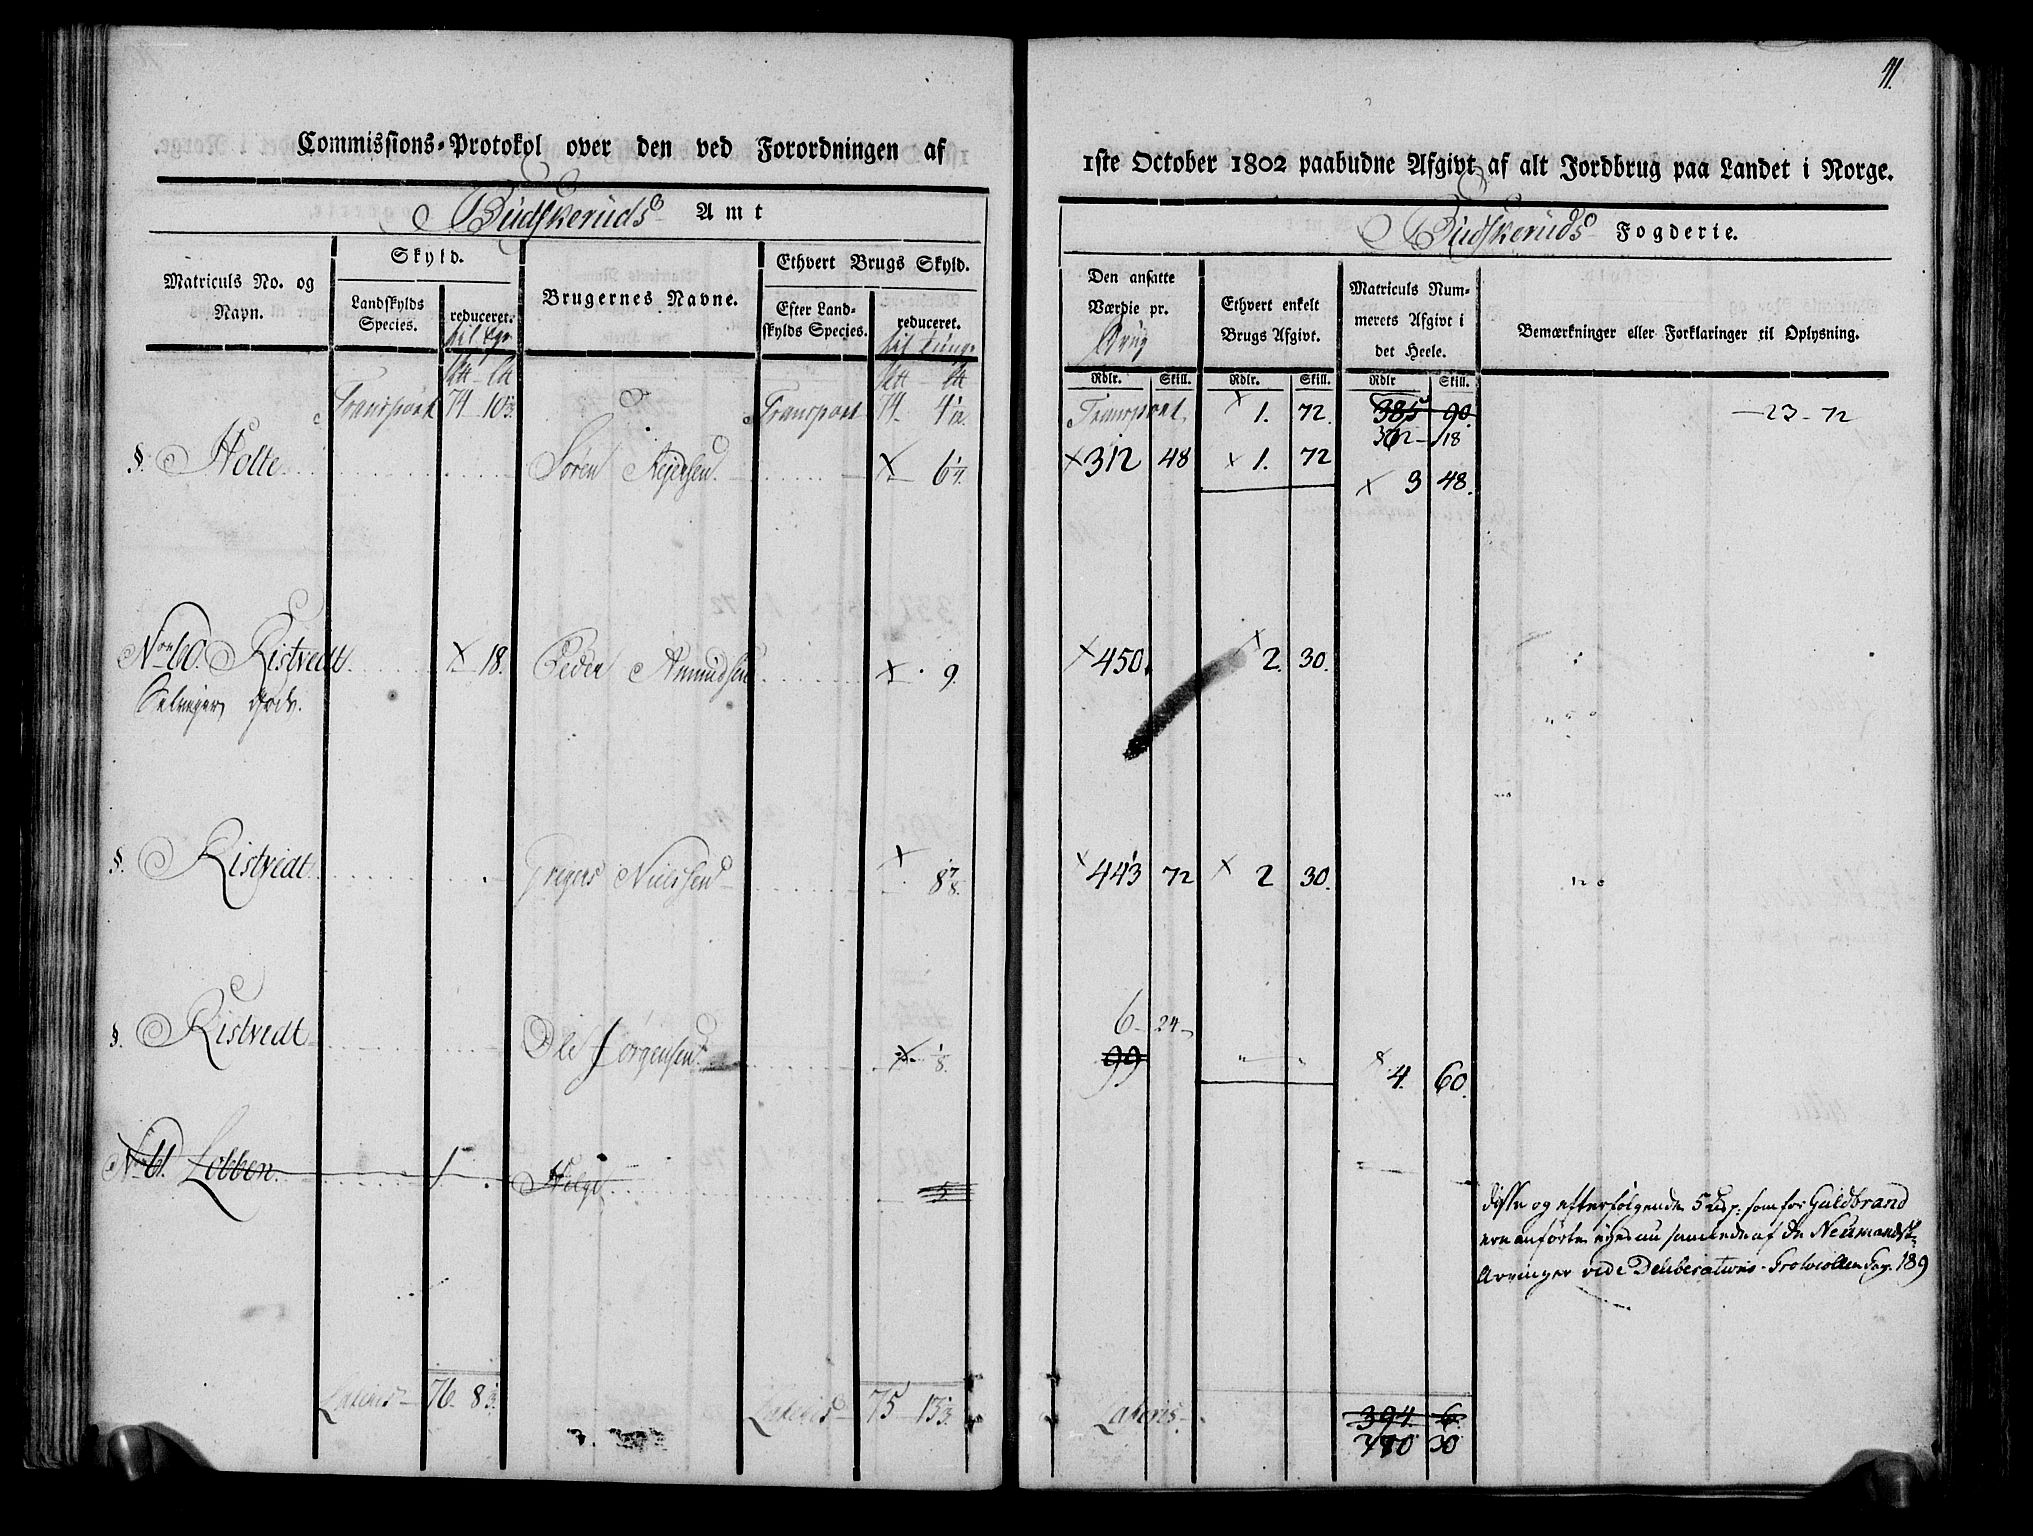 11.
Commissions-Protokol over den ved Forordningen af
1ste October 1802 paabudne Afgivt af alt Jordbrug paa Landet i Norge.
Budskeruds Amt
Budskeruds Fogderie.
Matriculs No. og Navn.
Skyld.
Landskylds Species.
reduceret.
Brugernes Navne.
Ethvert Brugs Skyld.
Efter Landskylds Species.
reduceret.
til Tunge
Den ansatte Værdie pr. Brug
Rdlr. Skill.
Ethvert enkelt Brugs Afgivt.
Rdlr. Skill.
Matriculs Nummerets Afgivt i det Heele.
Rdlr Skill.
Bemærkninger eller Forklaringer til Oplysning.
Transport 74 10 Transport 74 Transport × 1. 72 385 90. 23 - 72
18
§. Holte Søren × 6 × 312 48 × 1. 72 × 3 48.
No 60. Ristvedt × 18. Peder Amundsen × 9. × 450. × 2. 30.
Selveiger Gods.
§. Ristvedt Grigers Nielssen × 8 7/8. × 443 72 × 2 30.
§. Ristvedt Ole Jørgensen × 1/8. 6 - 24 - × 4. 60.
99
No 61. Lobben 1 - Helge 5
disse og efterfølgende 5 som for Guldbrand
ere anførte eyes nu samlede af De Neumandske
Arvinger vide Deliberations-Protocollen Pag. 189
Lateris 76 8 Lateris 75 13 Lateris 394. 6.
30